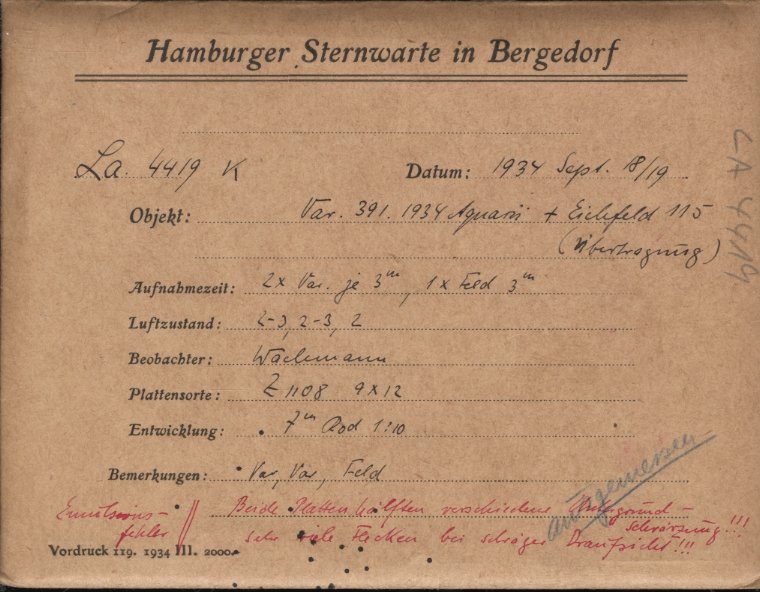 Hamburger Sternwarte in Bergedorf
La. 4419 K Datum: 1934 Sept. 18/19
LA 4419
Objekt: Var. 391. 1934 Aquarii + Eichfeld 115
(Übertragung)
Aufnahmezeit: 2x Var. je 3m, 1x Feld 3m
Luftzustand: 2-3, 2-3, 2
Beobachter: Wachmann
Plattensorte: Z 1108 9x12
Entwicklung: 7m Rod 1:10
Bemerkungen: Var, Var, Feld
ausgemessen
Emulsions- Beide Plattenhälften verschiedene Untergrund-
schwärzung!!!
fehler sehr viele Flecken bei schräger Draufsicht!!!
Vordruck 119. 1934 III. 2000.